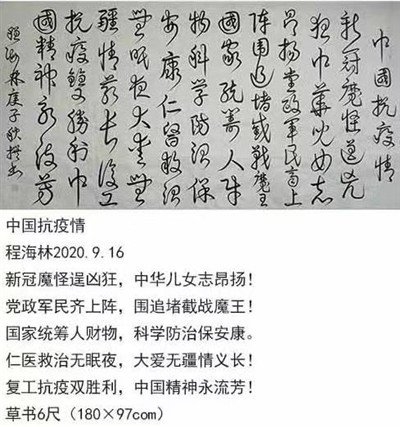 中國抗疫情
新冠魔怪逞凶
狂中華兒女志
昂扬党政軍民齐上
阵围追堵截戰魔王
國家統籌人财
物科学防治保
安康仁醫救治
無眠夜大愛無
疆情義长復工
抗疫雙勝利中
國精神永流芳
程海林庚子秋撰书
中国抗疫情
程海林2020.9.16
新冠魔怪逞凶狂，中华儿女志昂扬！
党政军民齐上阵，围追堵截战魔王！
国家统筹人财物，科学防治保安康。
仁医救治无眠夜，大爱无疆情义长！
复工抗疫双胜利，中国精神永流芳！
草书6尺（180×97com）